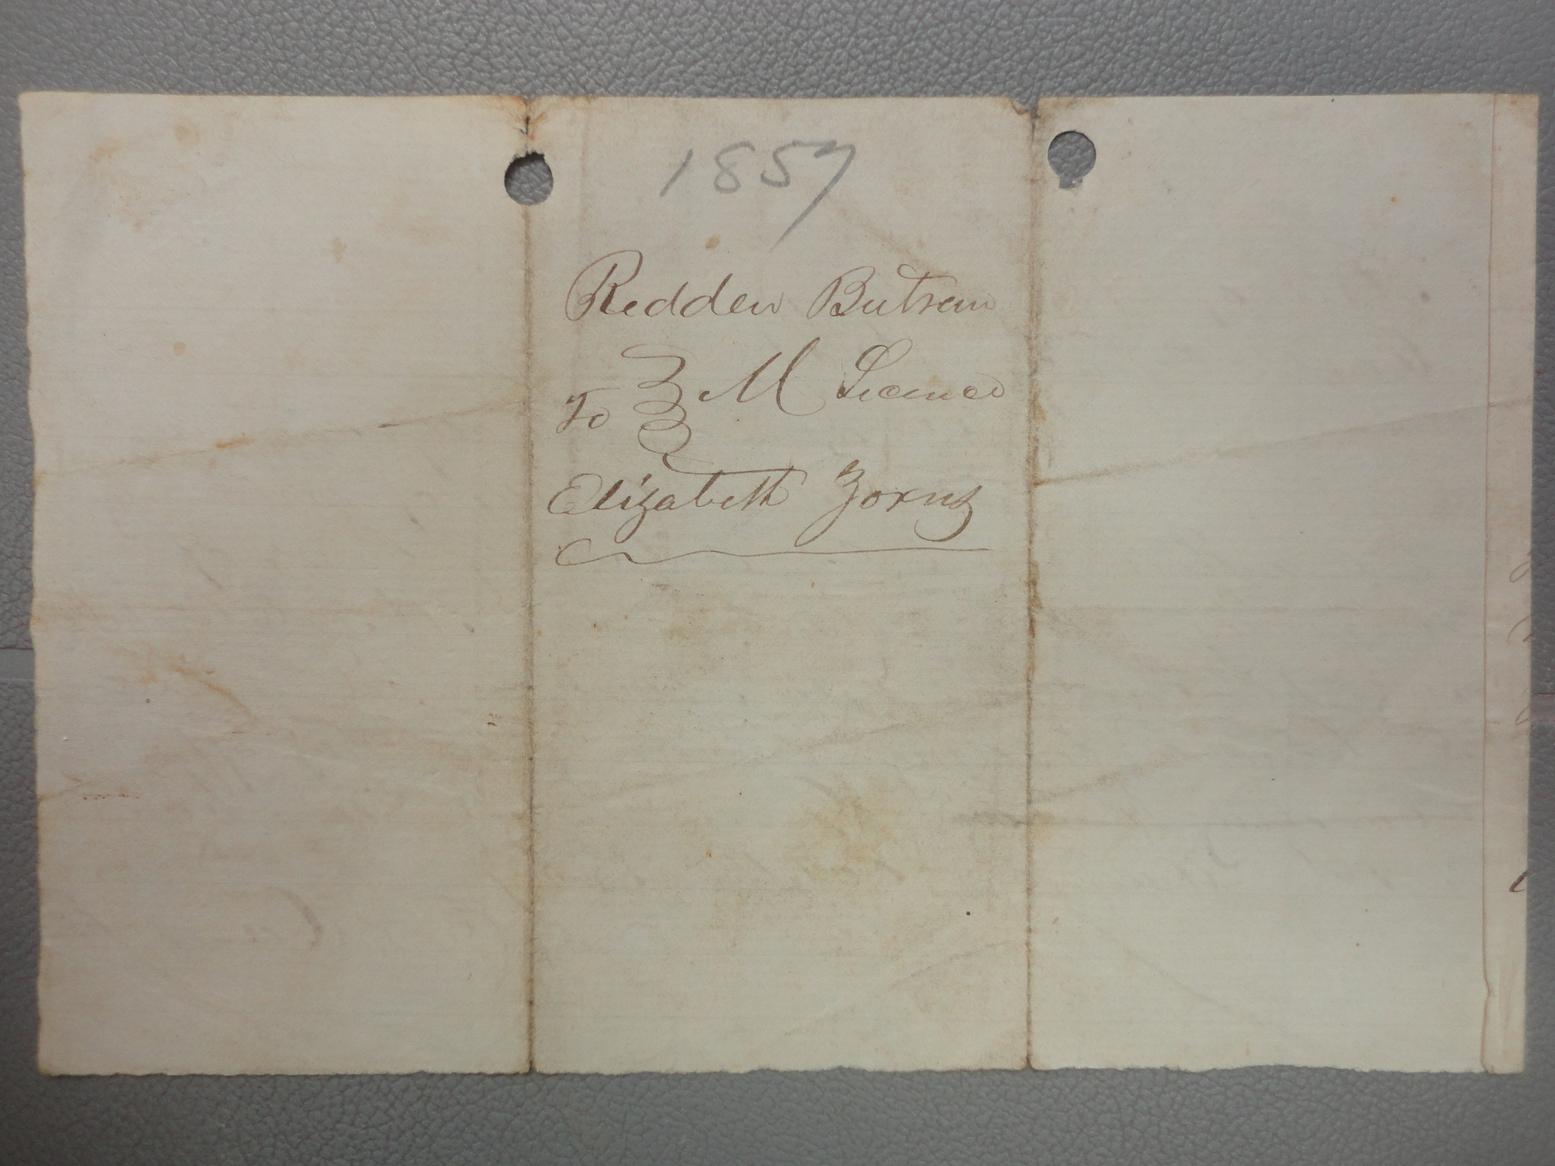 1857
Redden Butram
To M Licence
Elizabeth Zorns